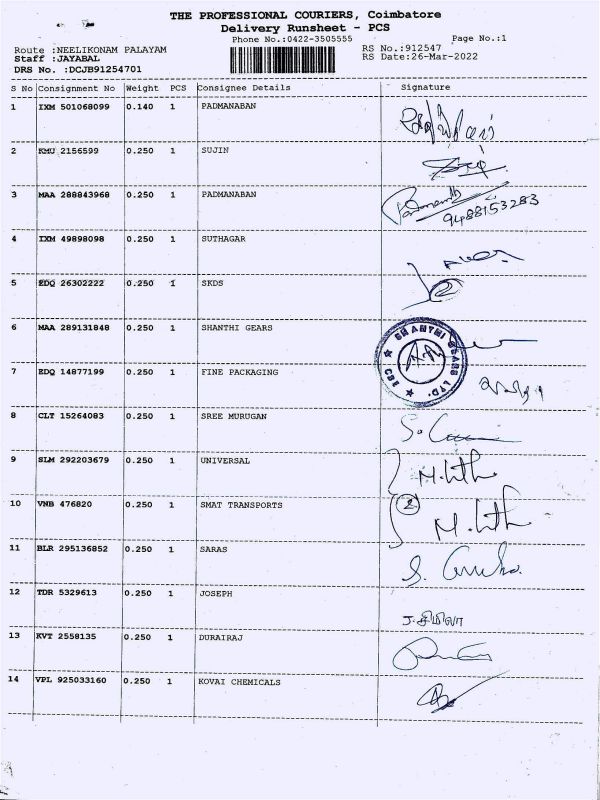 THE PROFESSIONAL COURIERS, Coimbatore
Delivery Runsheet - PCS
Phone No.:0422-3505555 Page No.:1
Route :NEELIKONAM PALAYAM RS No.:912547
Staff :JAYABAL RS Date:26-Mar-2022
DRS No. :DCJB91254701
S No Consignment No Weight PCS Consignee Details Signature
1 IXM 501068099 0.140 1 PADMANABAN
2 KMU 2156599 0.250 1 SUJIN
3 MAA 288843968 0.250 1 PADMANABAN
9488153283
4 IXM 49898098 0.250 1 SUTHAGAR
5 EDQ 26302222 0.250 1 SKDS
2
6 MAA 289131848 0.250 1 SHANTHI GEARS
SHANTHI GEARS LTD. CBE
7 EDQ 14877199 0.250 1 FINE PACKAGING
8 CLT 15264083 0.250 1 SREE MURUGAN
9 SLM 292203679 0.250 1 UNIVERSAL
10 VNB 476820 0.250 1 SMAT TRANSPORTS
2
11 BLR 295136852 0.250 1 SARAS
12 TDR 5329613 0.250 1 JOSEPH
ர.சிமிலா
13 KVT 2558135 0.250 1 DURAIRAJ
14 VPL 925033160 0.250 1 KOVAI CHEMICALS